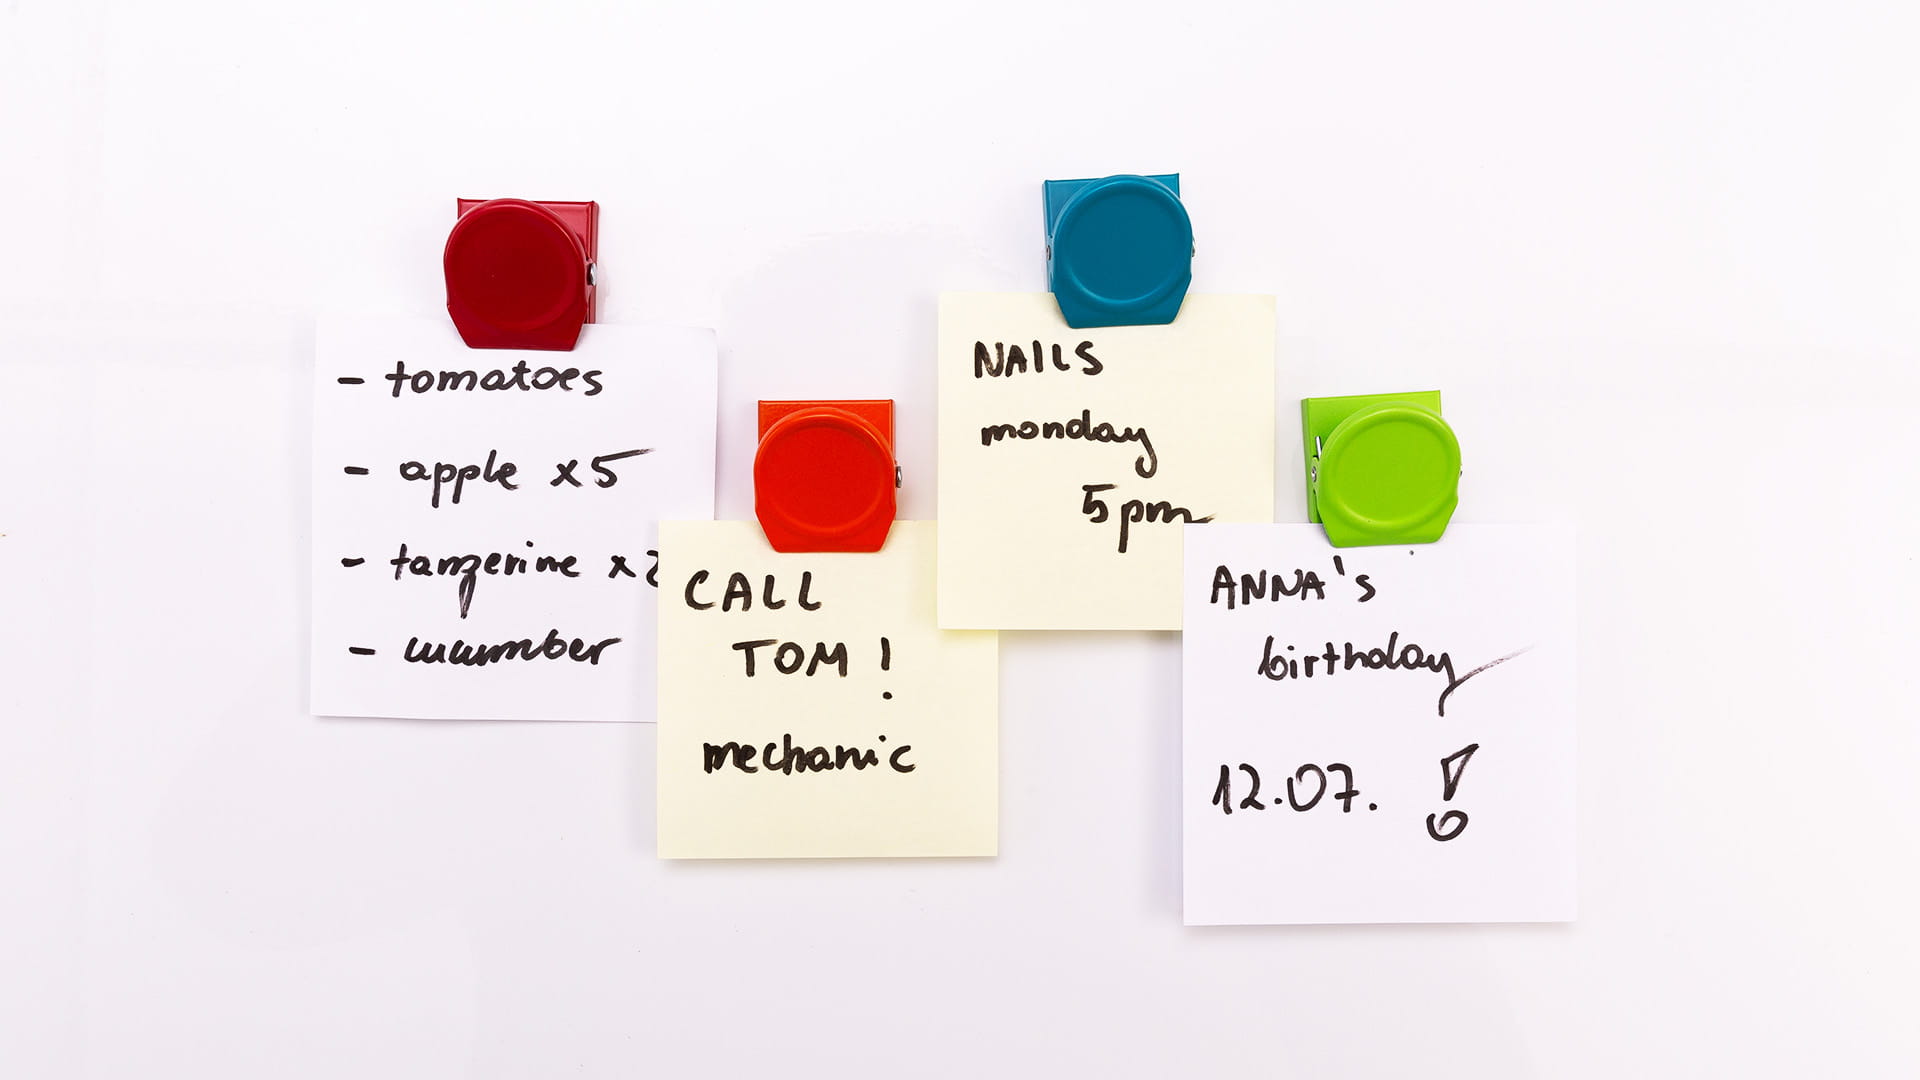 - tomatoes
- apple x5
- tangerine x2
- cucumber
CALL
TOM!
mechanic
NAILS
monday
5pm
ANNA's
birthday
12.07. !